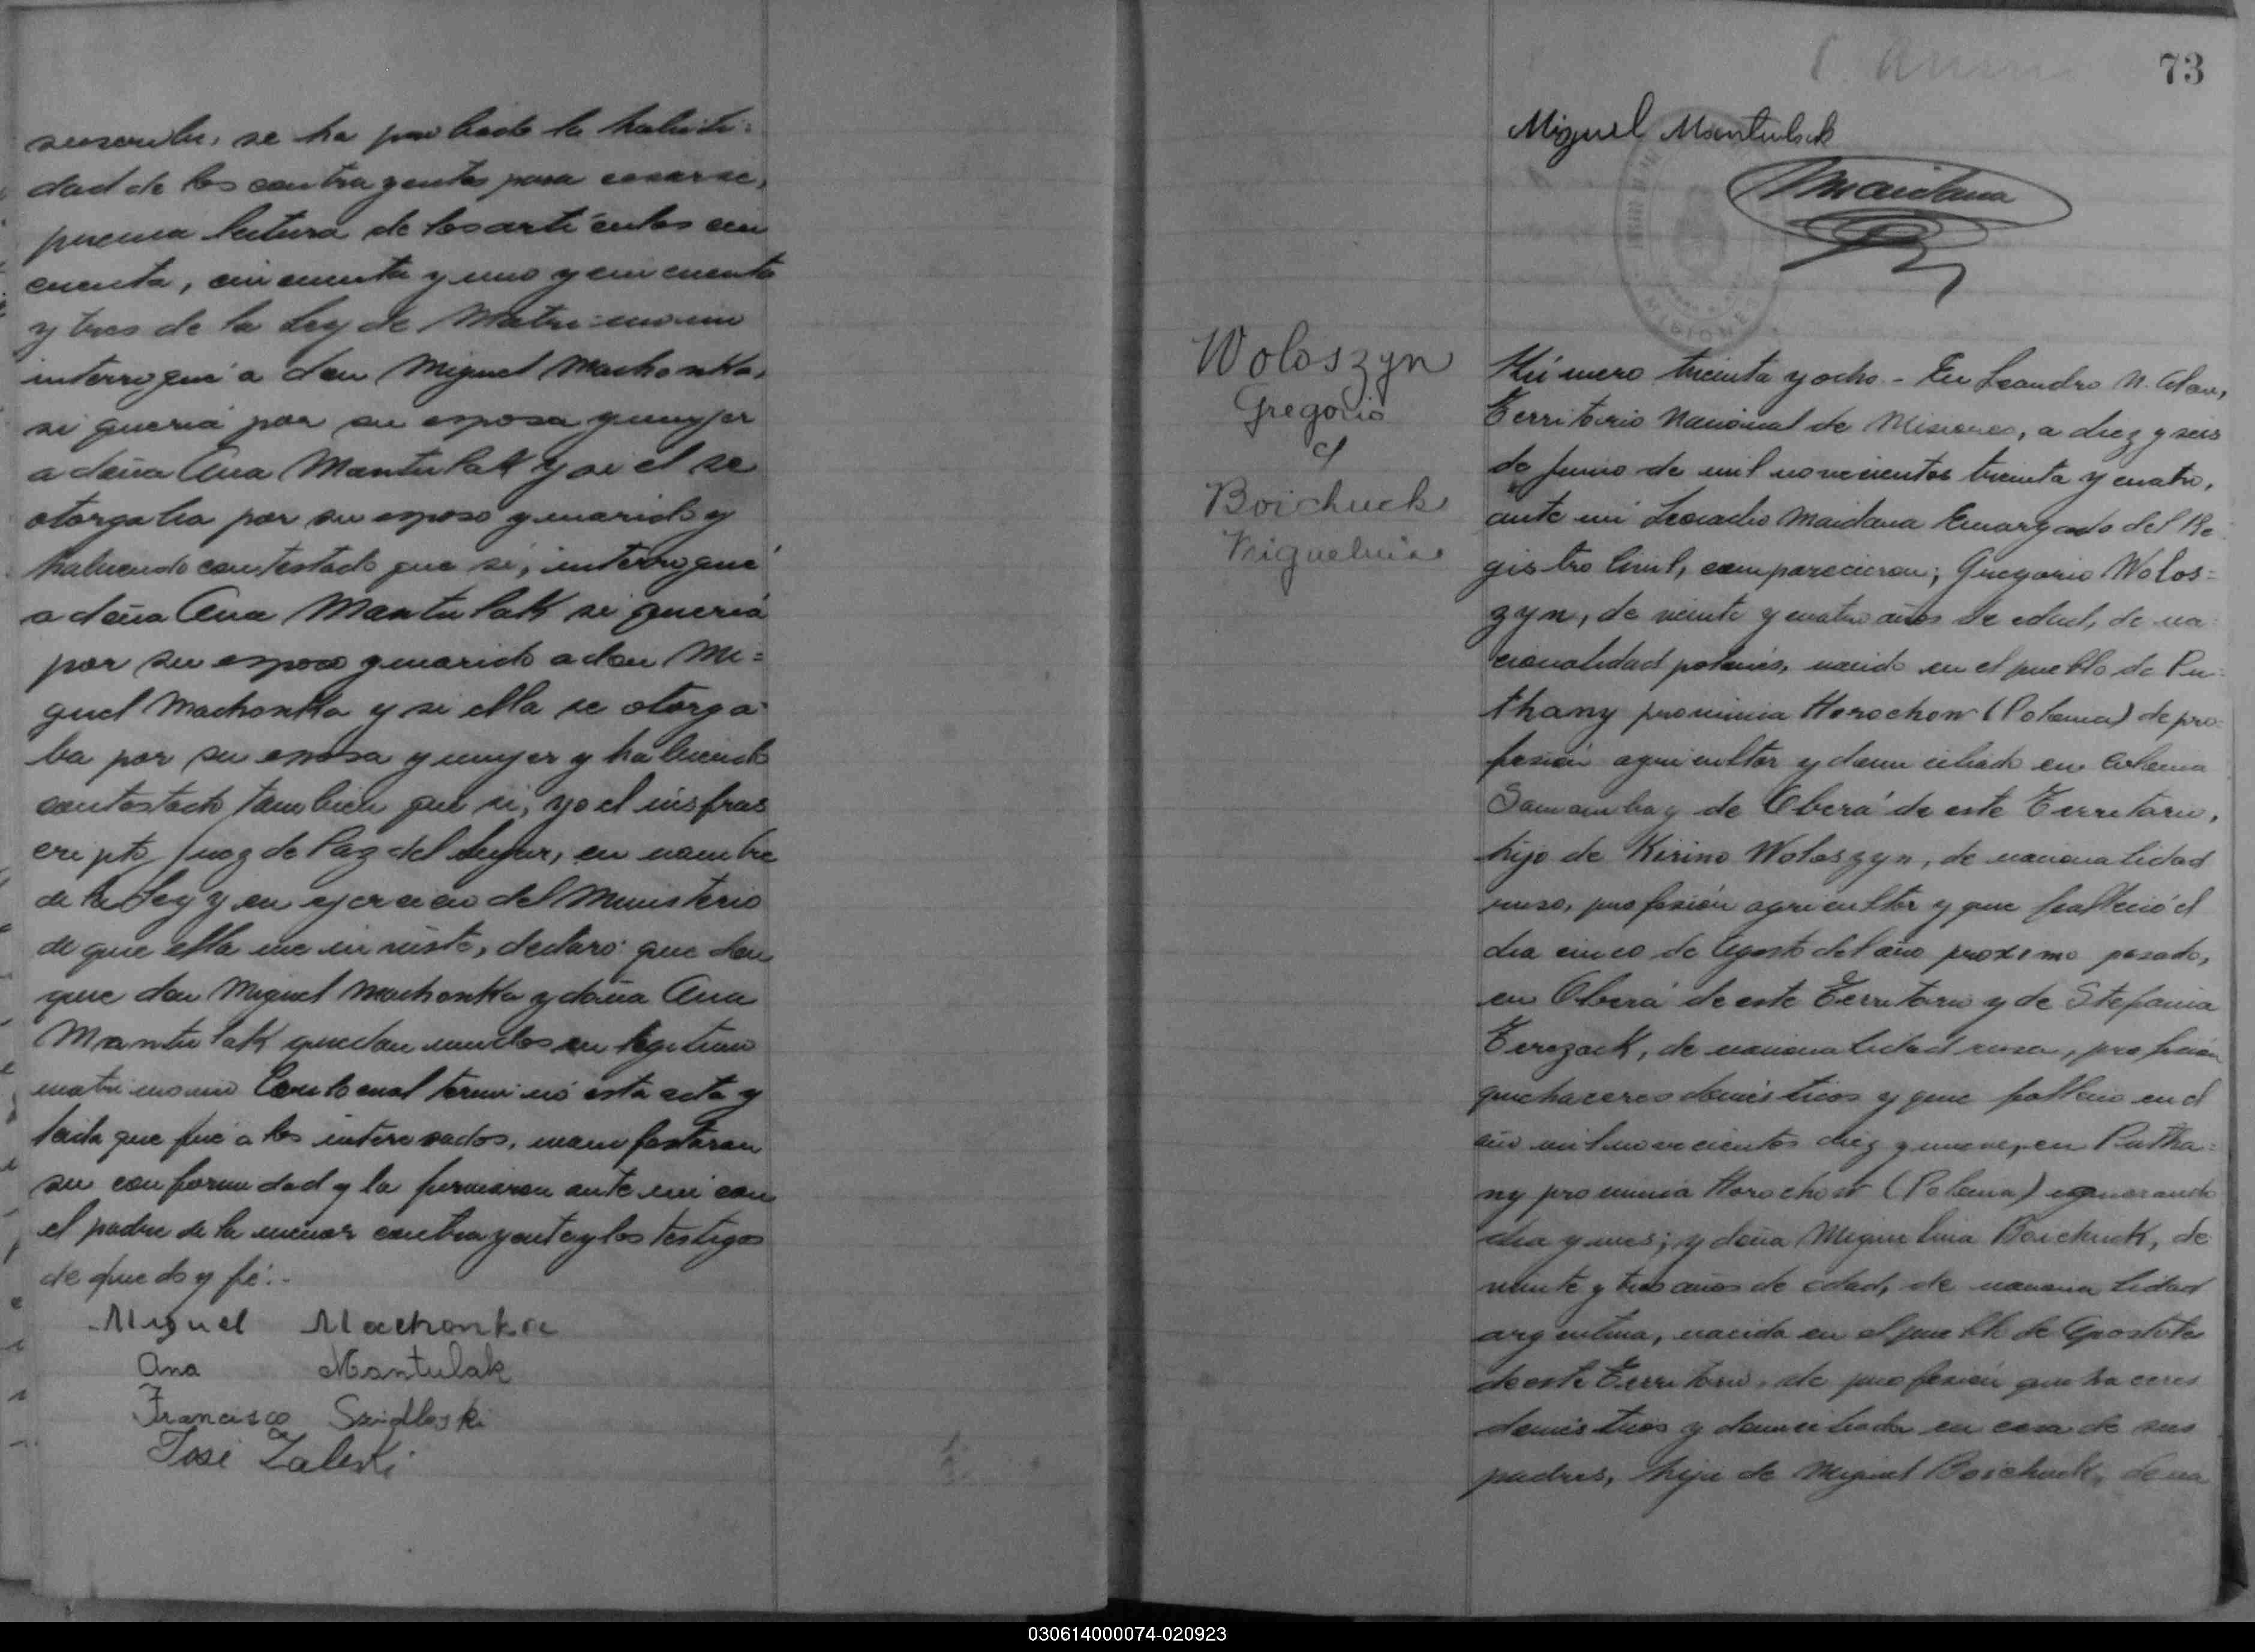 suscribe, se ha probado la habili=
dad de los contrayentes para casarse,
previa lectura de los artículos cin
cuenta, cincuenta y uno y cincuenta
y tres de la Ley de Matrimonio
interrogué a don Miguel Machonka,
si queria por su esposa y mujer
a doña Ana Mantulak y si el se
otorgaba por su esposo y marido y
habiendo contestado que si, interrogué
a doña Ana Mantulak si queria
por su esposo y marido a don Mi=
guel Machonka y si ella se otorga=
ba por su esposa y mujer y habiendo
contestado tambien que si, yo el infras
cripto Juez de Paz del lugar, en nombre
de la Ley y en ejercicio del Ministerio
de que ella me inviste, declaro: que don
que don Miguel Machonka y doña Ana
Mantulak quedan unidos en legitimo
matrimonio Con lo cual terminó esta acta y
leida que fué a los interesados, manifestaron
su conformidad y la firmaron ante mi con
el padre de la menor contrayente y los testigos
de que doy fé.-
Miguel Machonka
Ana Mantulak
Francisco Szidloski
José Zaleski
73
Miguel Mantulak
Maidana
MISIONES
Woloszyn
Gregorio
c/
Boichuck
Miguelina
Número treinta y ocho.- En Leandro N. Alem,
Territorio Nacional de Misiones, a diez y seis
de Junio de mil novecientos treinta y cuatro,
ante mi Leocadio Maidana Encargado del Re
gistro Civil, comparecieron; Gregorio Wolos=
zyn, de veinte y cuatro años de edad, de na=
cionalidad polonés, nacido en el pueblo de Pu=
thany provincia Horochow (Polonia) de pro=
fesión agricultor y domiciliado en Colonia
Samambay de Oberá de este Territorio,
hijo de Kirino Woloszyn, de nacionalidad
ruso, profesión agricultor y que falleció el
dia cinco de Agosto del año proximo pasado,
en Oberá de este Territorio y de Stefania
Terezack, de nacionalidad rusa, profesión
quehaceres domésticos y que fallecio en el
año mil novecientos diez y nueve, en Putha=
ny provincia Horochow (Polonia) ignorando
dia y mes; y doña Miguelina Boichuck, de
veinte y tres años de edad, de nacionalidad
argentina, nacida en el pueblo de Apostoles
de este Territorio, de profesión quehaceres
domésticos y domiciliada en casa de sus
padres, hija de Miguel Boichuck, de na
030614000074-020923